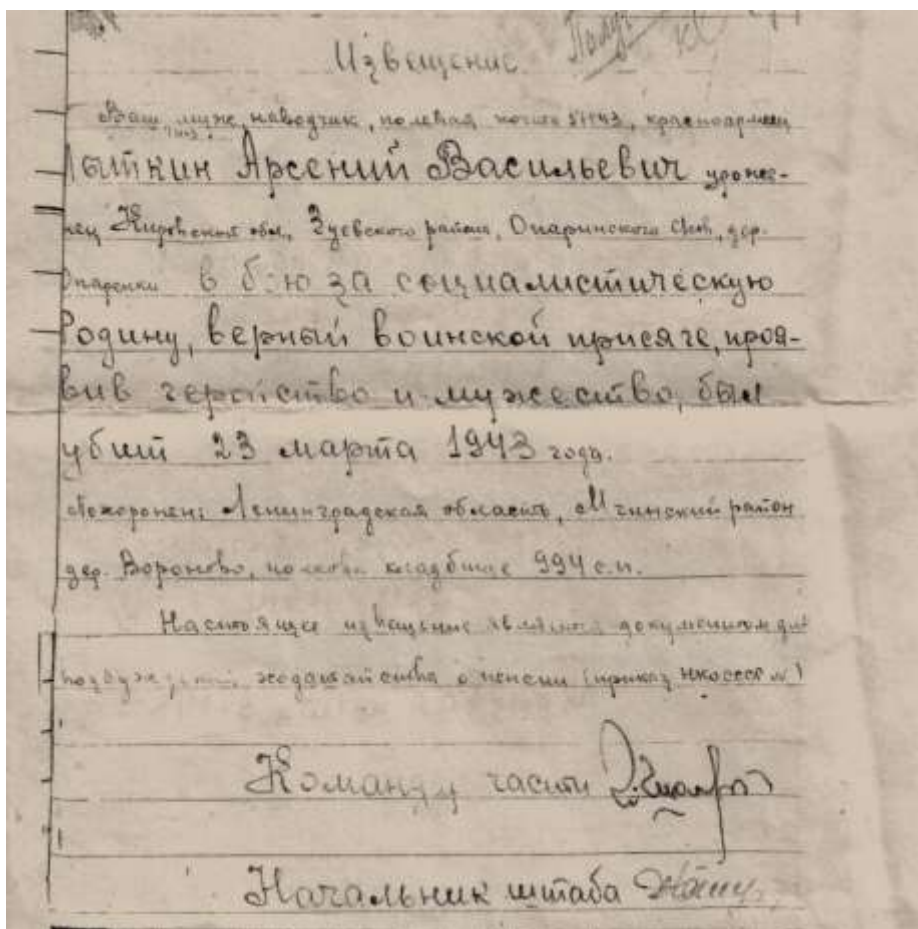 Извещение
Ваш муж, наводчик, полевая почта красноармеец
Лыткин Арсений Васильевич уроже-
нец Кировской обл., Зуевского района, Опаринского дер.
Опаренки в бою за социалистическую
Родину, верный воинской присяге, проя-
вив геройство и мужество, был
убит 23 марта 1943 года.
Похоронен: Ленинградская область, Мгинский район
дер. Вороново, кладбище 994 с.п.
Настоящее извещение является документом для
возбуждения ходатайства о пенсии (приказ НКО СССР №)
Команду части
Начальник штаба